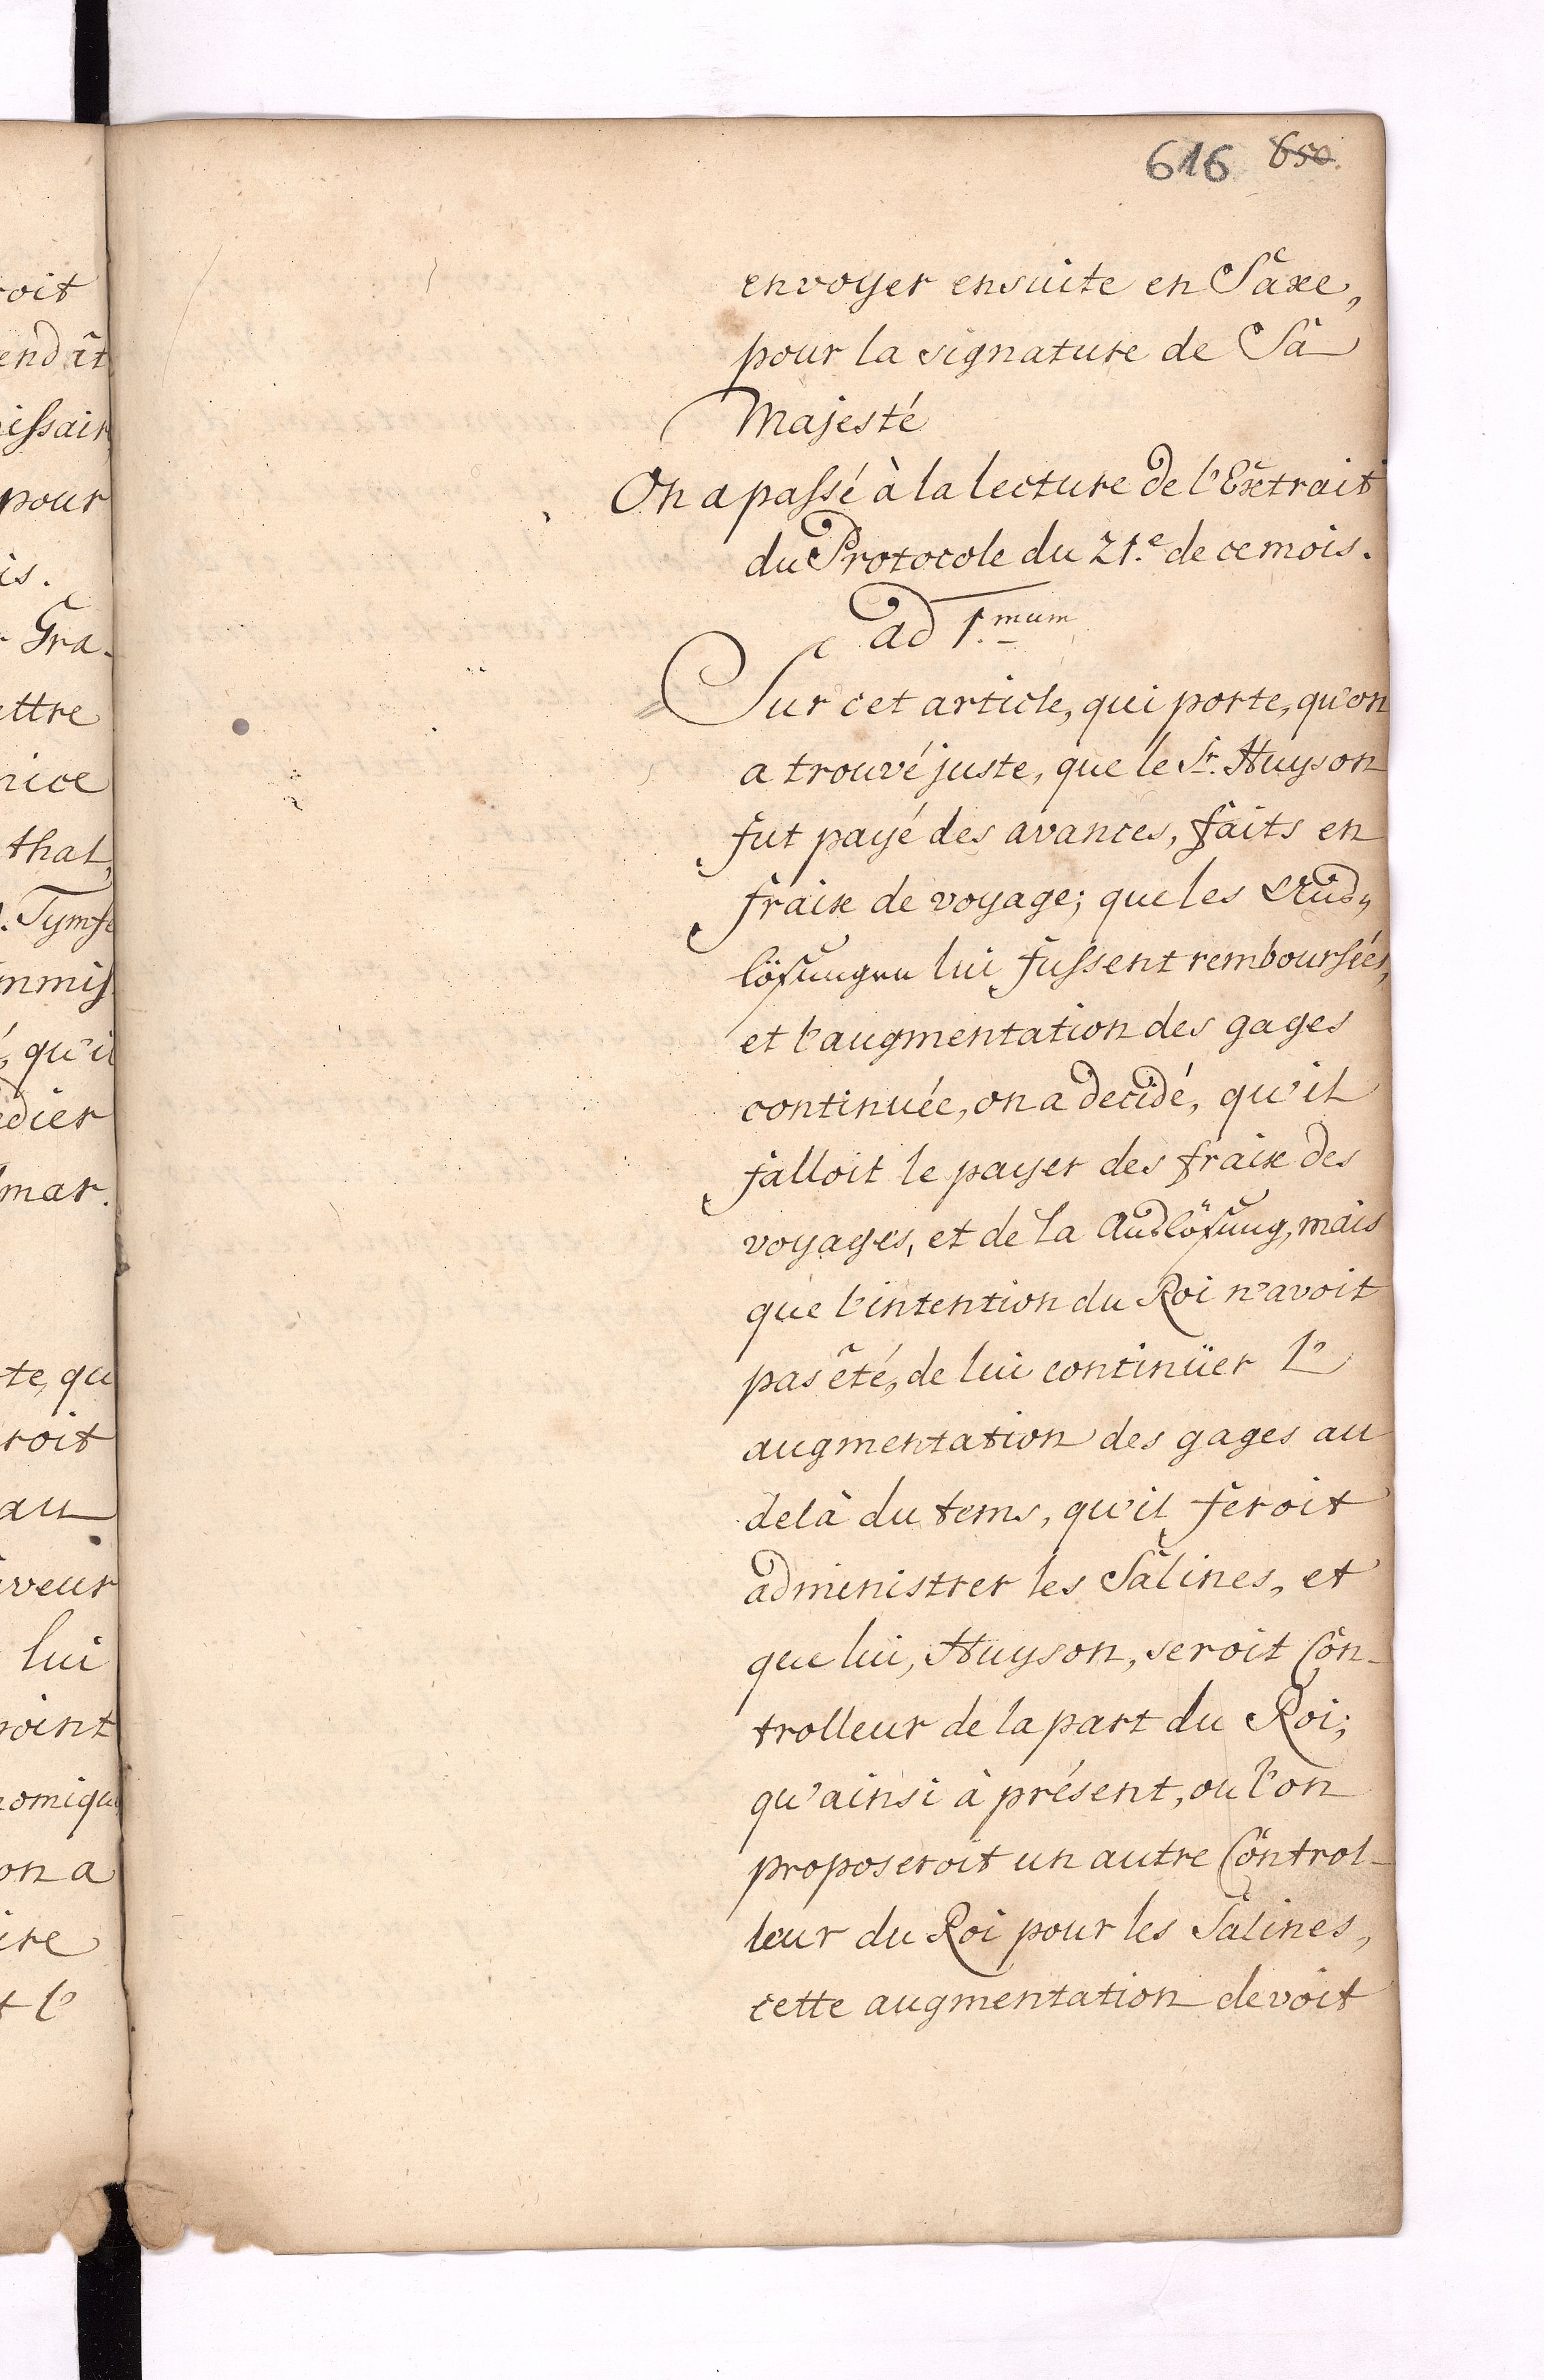 616 650.
envoyer ensuite en Saxe,
pour la signature de Sa
Majesté
On a passé à la lecture de l'Extrait
du Protocole du 21.e de ce mois.
ad 1.mum
Sur cet article, qui porte, qu'on
a trouvé juste, que le Sr. Huyson
fut payé des avances, faits en
fraix de voyage; que les Aus„
lösungen lui fussent remboursées,
et l'augmentation des gages
continuée, on a decidé, qu'il
falloit le payer des fraix des
voyages, et de la Auslösung, mais
que l'intention du Roi n'avoit
pas été, de lui continüer l'
augmentation des gages au
delà du tems, qu'il feroit
administrer les Salines, et
que lui, Huyson, seroit Con-
trolleur de la part du Roi;
qu'ainsi à présent, ou l'on
proposeroit un autre Control-
leur du Roi pour les Salines,
cette augmentation devoit
roit
endît
issair
pour
is.
Gra-
ettre
nice
thal,
qu'il
edier
mar.
te, qu
roit
au
aveur
lui
point
nomiqu
on a
ire
t l'